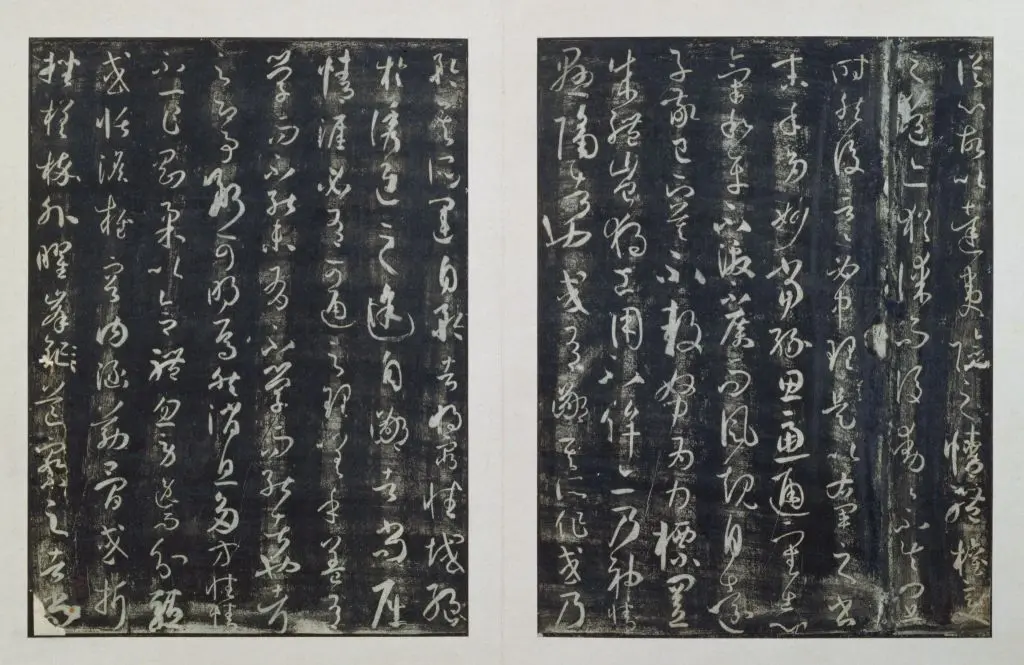 從心故以達夷險之情體權變
之道亦猶謀而後動動不失宜
時然後言言必中理矣是以右軍之書
末年多妙當緣思慮通審志
氣和平不激不厲而風規自遠
子敬已下莫不鼓努為力標置
成體豈獨工用不侔亦乃神情
懸隔者也或有鄙其所作或乃
矜其所運自矜者將窮性域絕
於誘進之途自鄙者尚屈
情涯必有可通之理嗟乎蓋有
學而不能未有不學而能者也考
之即事斷可明焉然消息多方性情
不一乍剛柔以合體忽勞逸而分驅
或恬澹雍容內涵筋骨或折
挫槎枿外曜鋒芒察之者尚